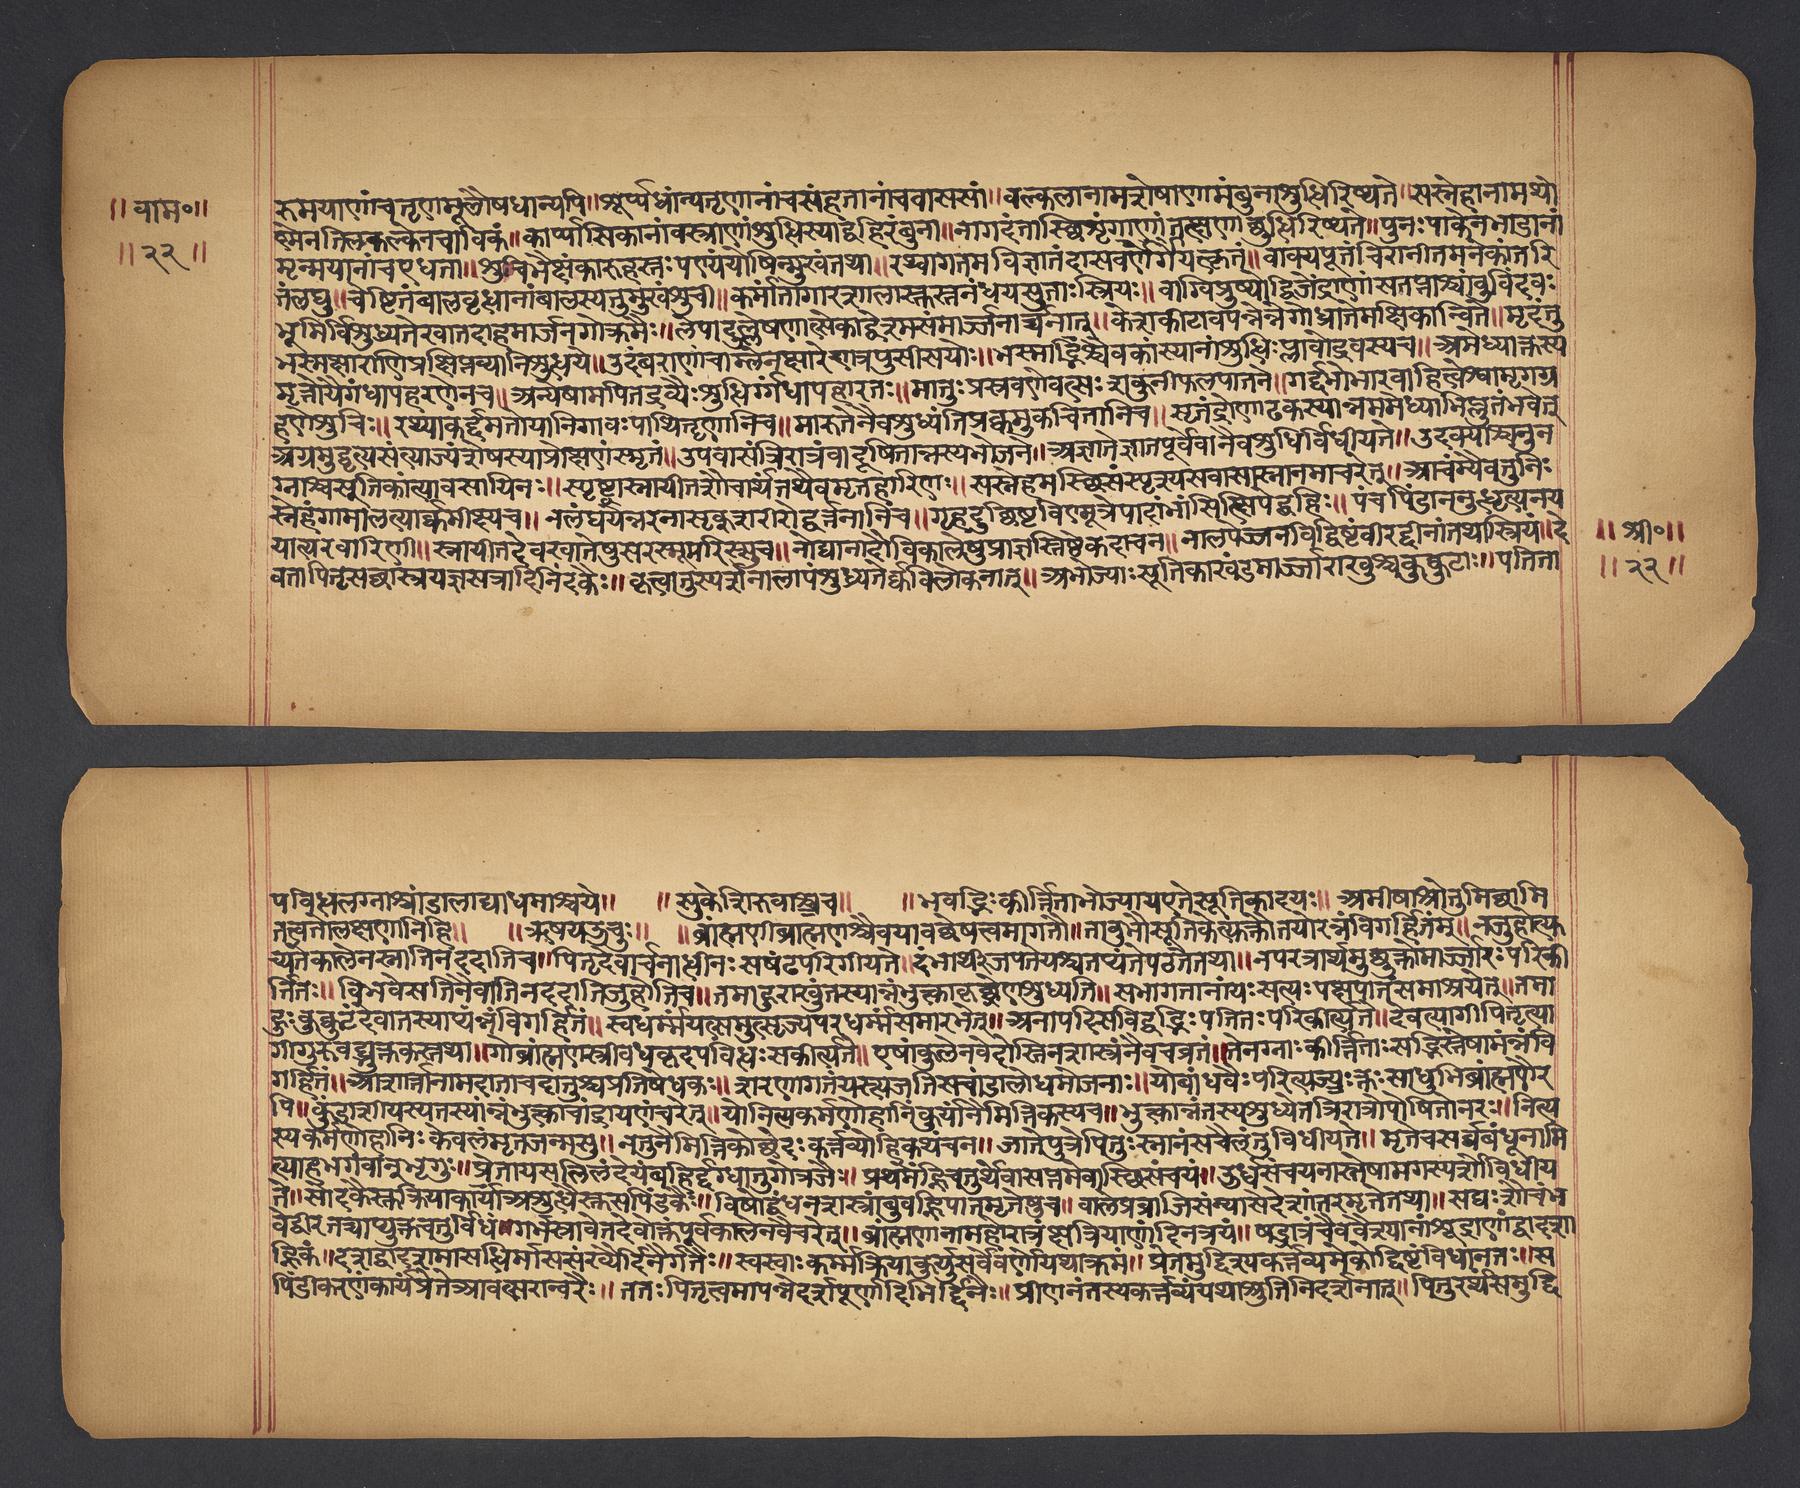 ॥वाम०॥
॥२२॥
रूमयाणांचतृणमूलौषधान्यपि॥शूर्प्पधांन्यतृणानांचसंहतानांचवाससां॥वल्कलानामशेषाणामंबुनाशुधिरिष्यते॥सस्नेहानामथो
ष्मेनतिलकल्केनचाविकं॥कार्प्पासिकानांवस्त्राणांशुधिस्याद्वह्निरंबुना॥नागदंतास्थिशृंगाणांतत्क्षणाछुधिरिष्यते॥पुनःपाकेनभांडानां
मृन्मयानांचएधता॥शुचिभैक्षंकारुहस्तःपण्यंयोषिन्मुखंतथा॥रथ्यागतमविज्ञातंदासवर्णेर्गयत्कृतं॥वाक्यपूतंचिरानीतमनेकांतरि
तंलघु॥चेष्टितंबालवृधानांबालस्यतुमुखंशुची॥कर्मांतांगारशालास्कस्तनंधयसुताःस्त्रियः॥वाग्विप्रुष्योद्विजेंद्राणांसतप्ताश्चांबुबिंदवः
भूमिर्विशुध्यतेखातदाहमार्जनगोक्रमैः॥लेपादुल्लेषणात्सेकाद्वेश्मसंमार्ज्जनार्च्चनात्॥केशकीटावपन्नेन्नेगोघ्रातेमक्षिकान्विते॥मृदंतु
भस्मक्षाराणिप्रक्षिप्तव्यानिशुधये॥उदुंबराणांचाम्लेनक्षारेणत्रपुसीसयोः॥भस्मांद्भिश्चैवकांस्यानांशुधिःप्लावोद्रवस्यच॥अमेध्याक्तस्य
मृत्तोयैगंधापहरणेनच॥अन्येषामपितद्रव्यैःशुधिर्गंधापहारतः॥मातुःप्रस्रवणेवत्सःशकुनीफलपातने॥गर्द्दभोभारवाहित्वेश्वामृगग्र
हणेशुचिः॥रथ्याकर्द्दमतोयानिगावःपथितृणानिच॥मारुतेनैवशुध्यंतिपक्वमुकचितानिच॥सृतंद्रोणाढकस्यान्नममेध्याभिप्लुतंभवेत्
अग्रमुद्धृत्यसंत्याज्यंशेषस्याप्रोक्षणंस्मृतं॥उपवासंत्रिरात्रंवादूषितान्नस्यभोजने॥अज्ञातेज्ञातपूर्ववानैवशुधिर्विधीयते॥उदक्याश्वानुन
ग्नाश्चसूतिकांत्यावसायिनः॥स्पृष्ट्वास्नायीतशौचार्थंतथैवमृतहारिणः॥सस्नेहमस्थिसंस्पृश्यसवासास्नानमाचरेत्॥आचंम्यैवतुनिः
स्नेहंगामालत्यार्कमीक्ष्यच॥नलंघयेन्नरेनासृक्शरीरोद्वर्त्तनानिच॥गृहदुछिष्टविण्मूत्रेपादांभांसिक्षिपेद्बहिः॥पंचपिंडाननुधृत्यनय
यात्परवारिणी॥स्नायीतदेवखातेषुसरस्सूपरिस्सुच॥नोद्यानादौविकालेषुप्राज्ञस्तिष्ठेकदाचन॥नालपेज्जनविद्विष्टंवीरद्दीनांतथास्त्रियं॥दे
वतापितृसच्छास्त्रयज्ञसत्रादिनिंदकैः॥कृत्वातुस्पर्शनालापंशुध्यतेर्कविलोकनात्॥अभोज्याःसूतिकाखंडमार्ज्जाराखुश्चकुक्कुटाः॥पतिता
॥श्री०॥
॥२२॥
पविधलग्नाश्चांडालाद्याधमाश्चये॥ ॥सुकेशिरुवाश्चच॥ ॥भवद्भिःकीर्त्तिताभोज्यायएतेसूतिकादयः॥अमीषांश्रोतुमिछामि
तत्वतोलक्षणानिहि॥ ॥ऋषयउचुः॥ ॥ब्राह्मणीब्राह्मणश्चैवयावद्वेषत्वमागतौ॥तावुभौसूतिकेत्यक्तौतयोरन्नंविगर्हितंम्॥नजुहोत्य
च्यतेकालेनस्नातिनददातिच॥पितृदेवार्चनाधीनःसषंढःपरिगीयते॥दंभार्थंरुजपतेयश्चतप्यतेपठतेतथा॥नपरत्रार्थमुद्युक्तोमार्ज्जारःपरिकी
र्तितः॥विभवेसतिनैवात्तिनददातिजुहोतिच॥तमाहुराखुंतस्यान्नंभुक्त्वाकृछ्रेणशुध्यति॥सभागतानांयःसत्यःपक्षपातंसमाश्रयेत्॥तमा
हुःकुक्कुटंदेवातस्याप्यन्नंविगर्हितं॥स्वधर्म्मंयत्समुत्सृज्यपरधर्म्मंसमारभेत्॥अनापदिसविद्वद्भिःपतितःपरिकीर्त्यते॥देवत्यागीपितृत्या
गीगुरुवद्भुक्तकस्तथा॥गोब्राह्मणस्त्रीवधकृदपविधःसकीर्त्यते॥एषांकुलेनवेदोस्तिनशास्त्रंनैवचव्रतं॥तेनग्नाःकीर्त्तिताःसद्भिस्तेषामंन्नंवि
गर्हितं॥आशार्त्तानामदाताचदातुश्चप्रतिषेधकः॥शरणागतंयस्त्यजतिसचांडालोधमोजनाः॥योबांधवैःपरित्यज्यःक्तःसाधुभिर्ब्राह्मणैर
पि॥कुंडाशीयस्यतस्यांन्नंभुक्त्वाचांद्रायणंचरेत्॥योनित्यकर्मणोहानिंकुर्यांनैमित्तिकस्यच॥भुक्त्वान्नंतस्यशुध्येतत्रिरात्रोपोषितोनरः॥नित्य
स्यकर्मणोहानिःकेवलंमृतजन्मसु॥नतुनैमित्तिकोछेदःकर्त्तव्योहिकथंचन॥जातेपुत्रेपितुःस्नानंसचैलंतुविधीयते॥मृतेचसर्व्वबंधूनामि
त्याहभगवांन्भृगुः॥प्रेतायसलिलंदेयंबहिर्द्दग्ध्वातुगोत्रजैः॥प्रथमेह्निचतुर्थेवासप्तमेवास्थिसंचयं॥ऊर्ध्वंसंचयनात्तेषामगस्पर्शोविधीय
ते॥सोदकैस्तुक्रियाकार्याअशुधैस्तुसपिंडकैः॥विषोद्वंधनशस्त्रांबुवह्निपातमृतेषुच॥बालेप्रव्राजिसंन्यासेदेशांतरमृतेतथा॥सद्यःशौचंभ
वेद्वीरतच्चाप्युक्तचतुर्विधं॥गर्भस्रावेतदेवोक्तंपूर्वकालेनवैचरेत्॥ब्राह्मणानामहोरात्रंक्षत्रियाणांदिनत्रयं॥षड्रात्रंचैववैश्यानांशूद्राणांद्वादशा
ह्निकं॥दशद्वादशमासर्धिर्माससंख्यैर्दिनैर्गतैः॥स्वस्वाःकर्म्मक्रियाकुर्युःसर्वेवर्णायथाक्रमं॥प्रेतमुद्दिश्यकर्त्तव्यमेकोद्दिष्टंविधानतः॥स
पिंडीकरणंकार्यंप्रेतेआवत्सरान्नरैः॥ततःपितृत्वमापन्नेदर्शपूर्णादिभिर्द्दिनैः॥प्रीणनंतस्यकर्त्तव्यंयथाश्रुतिनिदर्शनात्॥पितुरर्थंसमुद्दि